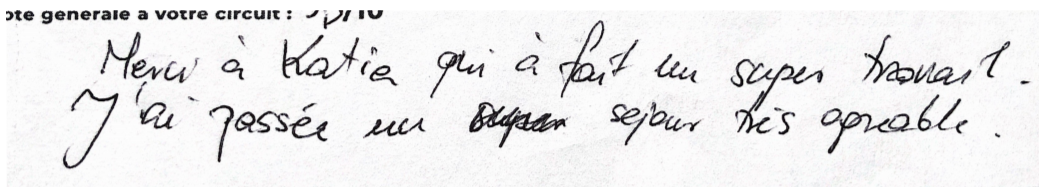 ote generale a votre circuit : /10
Merci à Katia qui à fait un super travail.
J'ai passée un super sejour très agreable.